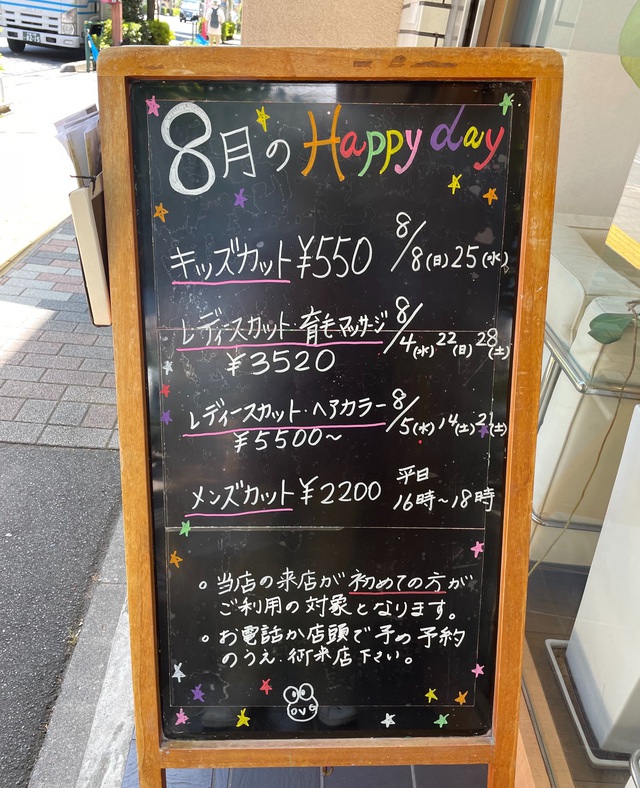 8月の Happy day
キッズカット ¥550 8/8(日)25(水)
レディースカット・育毛マッサージ 8/4(水)22(日)28(土)
¥3520
レディースカット・ヘアカラー 8/5(水)14(土)21(土)
¥5500〜
メンズカット ¥2200 平日
16時〜18時
。当店の来店が初めての方が
ご利用の対象となります。
。お電話か店頭で予め予約
のうえ、御来店下さい。